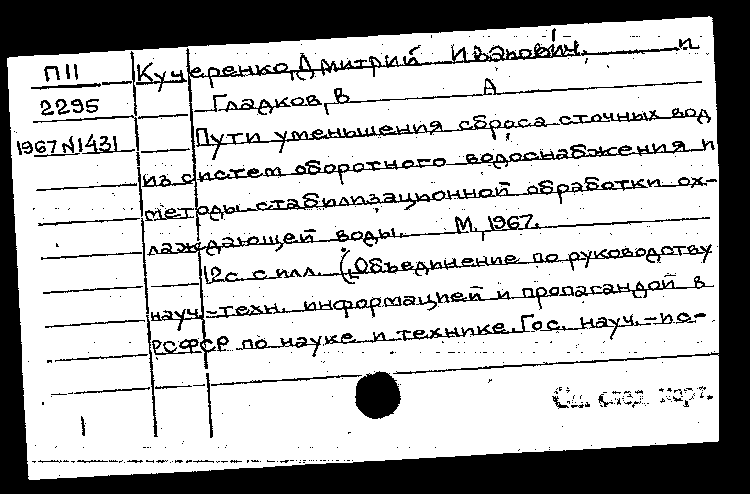 П11 Кучеренко, Дмитрий Иванович. и
2295 Гладков, В А
1967 N1431 Пути уменьшения сброса сточных вод
из систем оборотного водоснабжения и
методы стабилизационной обработки ох-
лаждающей воды. М, 1967.
12с. с илл. (Объединение по руководству
науч.-техн. информацией и пропагандой в
РСФСР по науке и технике. Гос. науч.-ис-
1 См. след. карт.